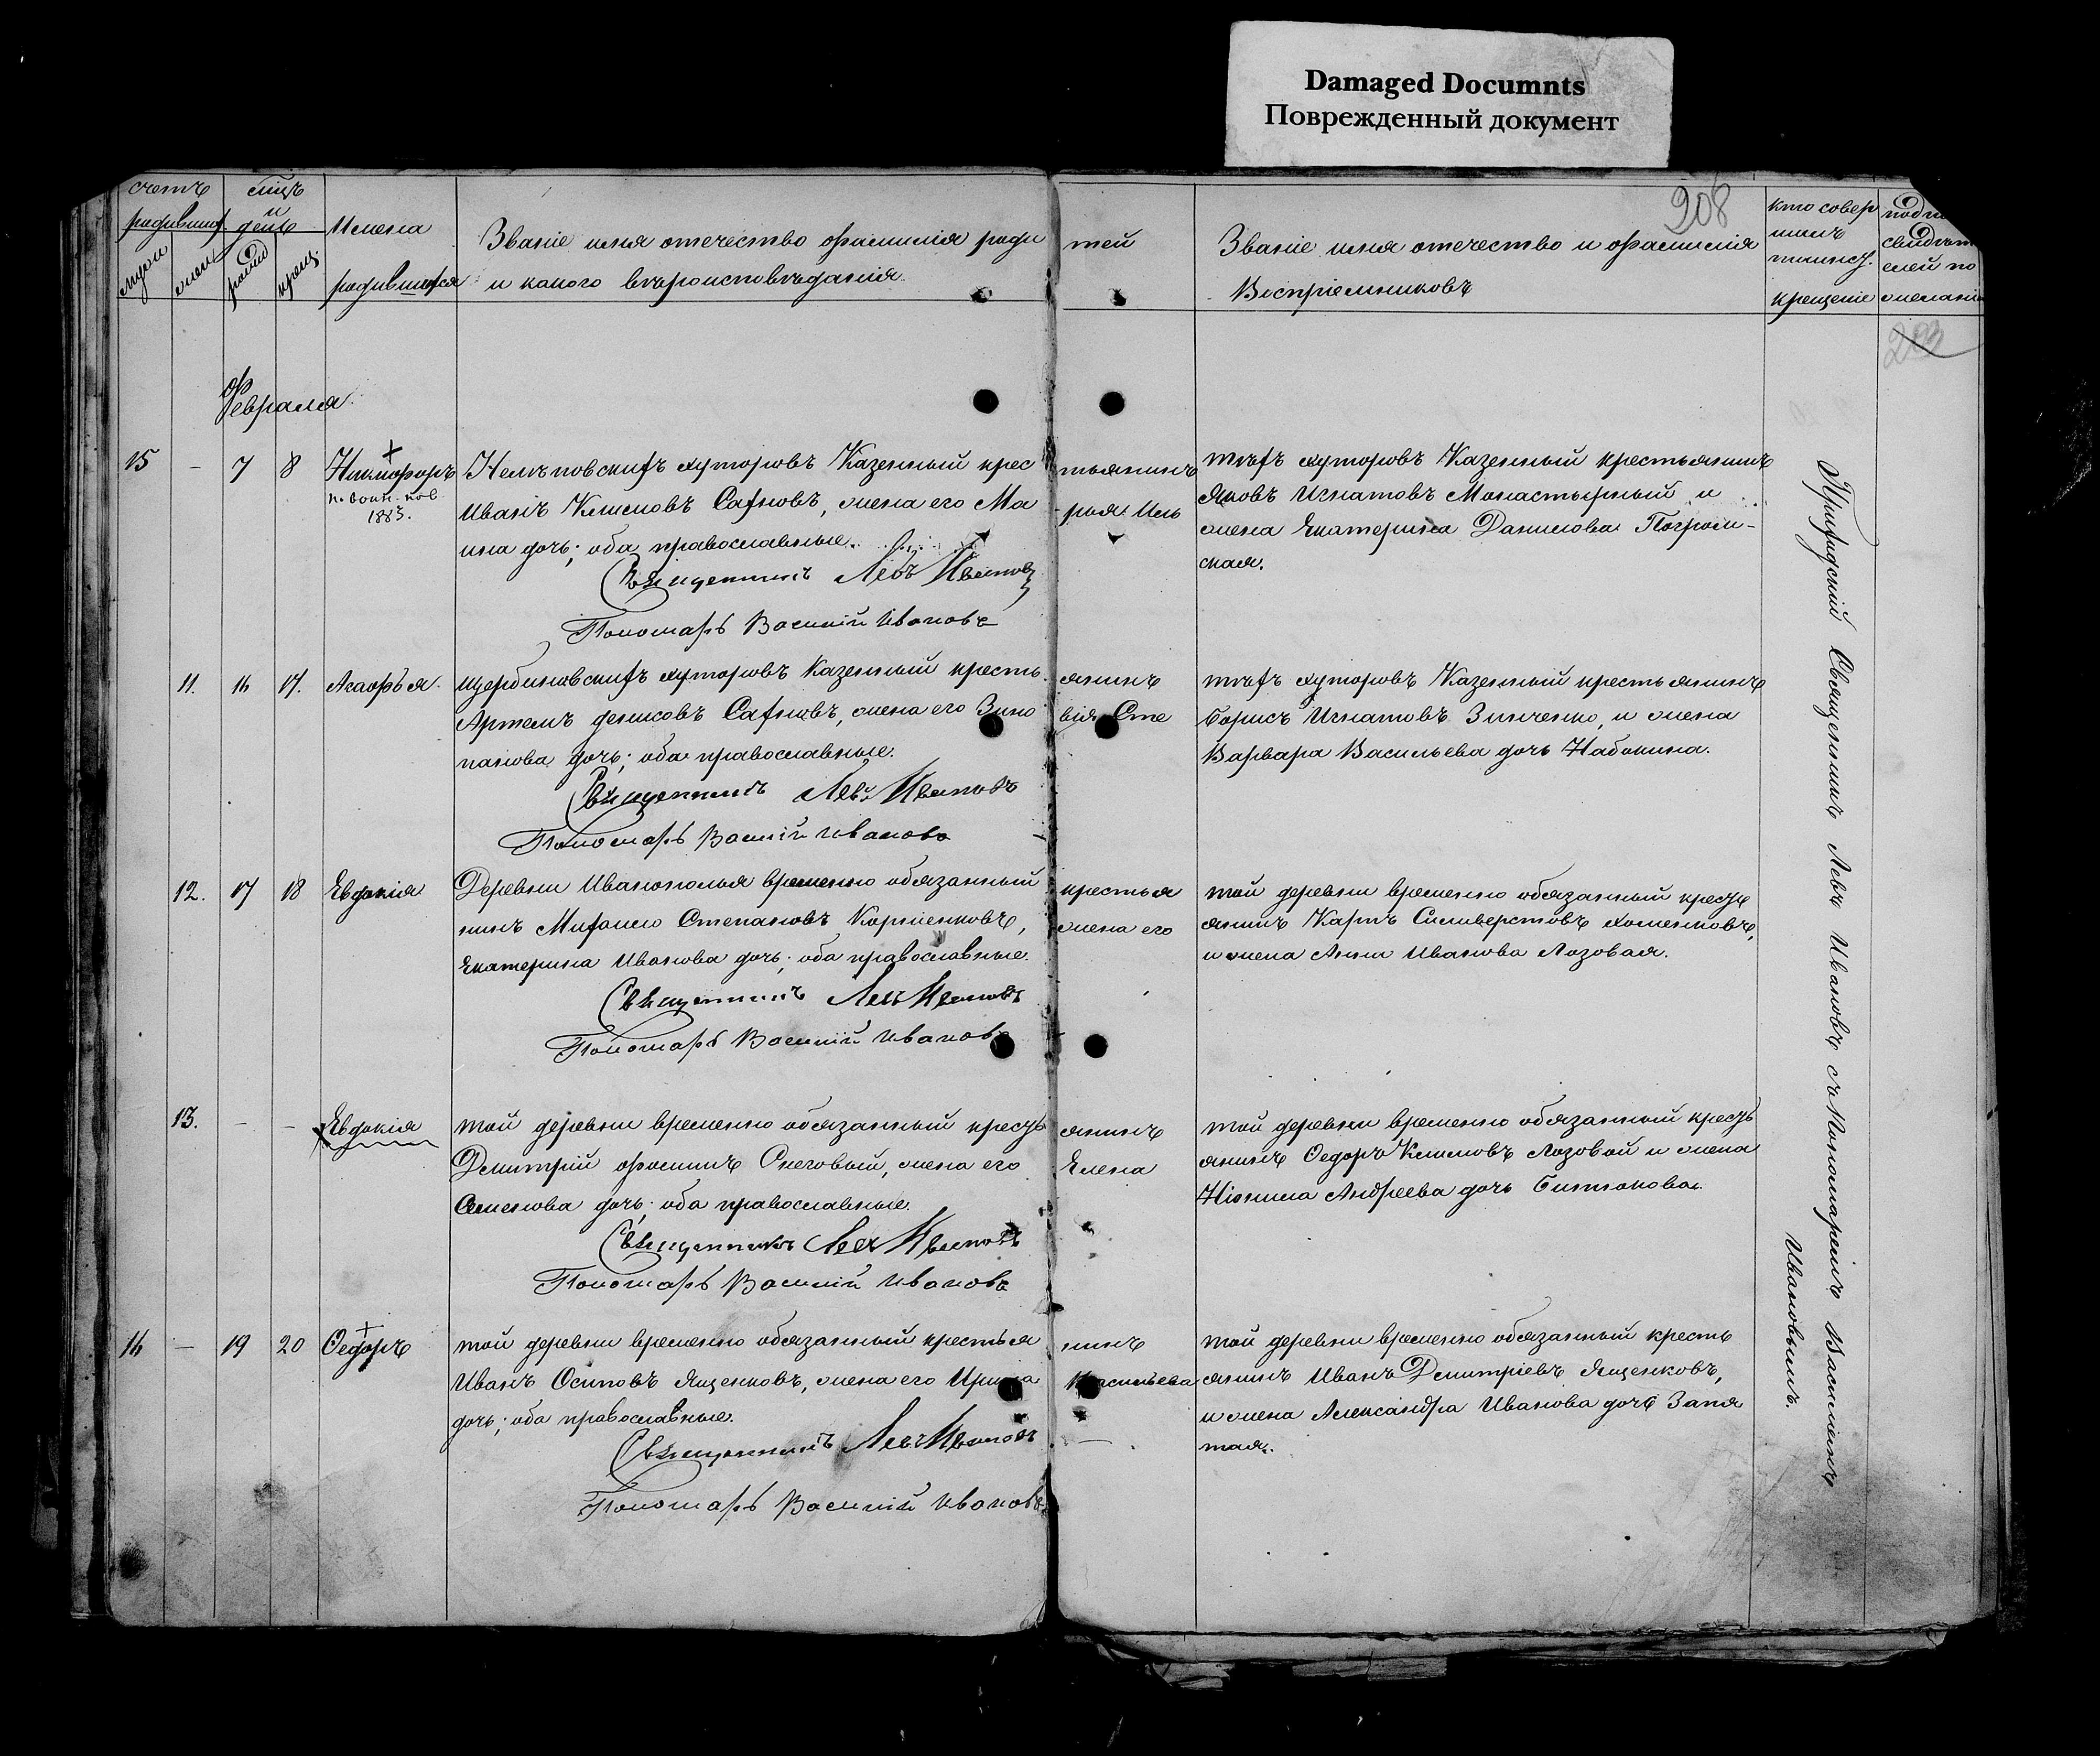 Damaged Documnts
Поврежденный документ
208
203
счетъ родившихъ
муж
жен
мцъ и день
рожд
крещ.
Имена родившихся
Званіе имя отечество фамилія роди тей
и какого вѣроисповѣданія.
Званіе имя отечество и фамилія
Воспріемниковъ
кто совер шилъ таинст. крещеніе
Февраля
15 – 7 8 Никифоръ
1883.
хуторовъ Казенный крес тьянинъ
Иванъ Климовъ жена его Ма рія Иль
ина дочь; оба православные.
Священникъ Левъ Ивановъ
Пономарь Василій Ивановъ
тѣхъ хуторовъ Казенный крестьянинъ
Яковъ Игнатовъ Монастырный и
жена Екатерина Данилова Погром-
ская.
11. 16 17. Агафья
Щербиновскихъ хуторовъ Казенный кресть янинъ
Артемъ Денисовъ жена его Зино вія Сте
панова дочь; оба православные.
Священникъ Левъ Ивановъ
Пономарь Василій Ивановъ
тѣхъ хуторовъ Казенный крестьянинъ
Борисъ Игнатовъ Зинченко, и жена
Варвара Васильева дочь Набокина.
12. 17 18 Евдокія
Деревни Иванополья временно обязанный крестья
нинъ Михаилъ Степановъ Корніенковъ, жена его
Екатерина Иванова дочь; оба православные.
Священникъ Левъ Ивановъ
Пономарь Василій Ивановъ
той деревни временно обязанный кресть
янинъ Карпъ Силиверстовъ Хоменковъ,
и жена Анна Иванова Лозовая.
13. – – Евдокія
той деревни временно обязанный кресть янинъ
Дмитрій Фоминъ жена его Елена
Семенова дочь; оба православные.
Священникъ Левъ Ивановъ
Пономарь Василій Ивановъ
той деревни временно обязанный кресть
янинъ Ѳедоръ Климовъ Лозовой и жена
Андреева дочь
16 – 19 20 Ѳедоръ
той деревни временно обязанный крестья нинъ
Иванъ Осиповъ Ященковъ, жена его Ирина Васильева
дочь; оба православные.
Священникъ Левъ Ивановъ
Пономарь Василій Ивановъ
той деревни временно обязанный кресть
янинъ Иванъ Дмитріевъ Ященковъ,
и жена Александра Иванова дочь Запя
тая.
Приходскій Священникъ Левъ Ивановъ съ Пономаремъ Василіемъ
Ивановымъ.